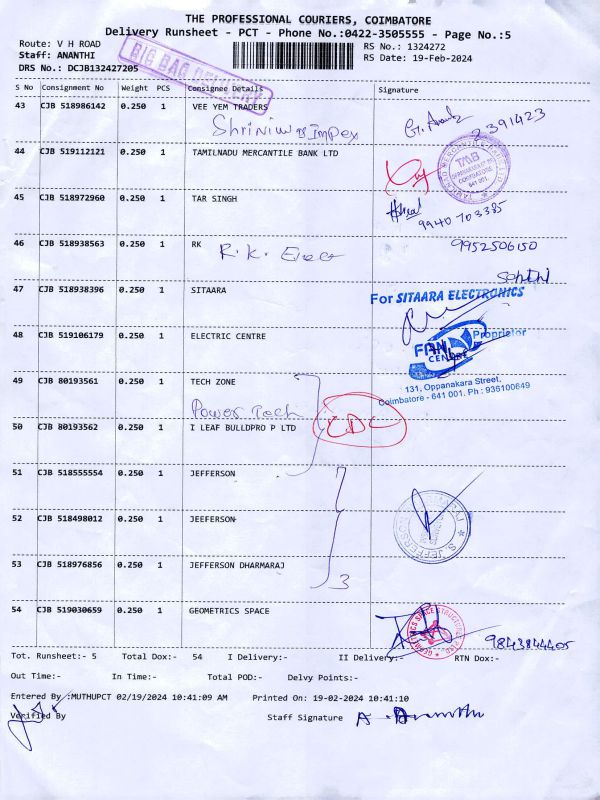 THE PROFESSIONAL COURIERS, COIMBATORE
Delivery Runsheet - PCT - Phone No.:0422-3505555 - Page No.:5
Route: V H ROAD
RS No.: 1324272
Staff: ANANTHI
RS Date: 19-Feb-2024
DRS No.: DCJB132427205
BIG BAG DELIVERY
S No Consignment No Weight PCS Consignee Details Signature
43 CJB 518986142 0.250 1 VEE YEM TRADERS
Impex
391423
44 CJB 519112121 0.250 1 TAMILNADU MERCANTILE BANK LTD
TMB
COIMBATORE
641 001
45 CJB 518972960 0.250 1 TAR SINGH
9940703385
46 CJB 518938563 0.250 1 RK
R.K. Elec
9952506150
47 CJB 518938396 0.250 1 SITAARA
For SITAARA ELECTRONICS
Proprietor
48 CJB 519106179 0.250 1 ELECTRIC CENTRE
FAN
CENTRE
131, Oppanakara Street,
Coimbatore - 641 001. Ph : 936100649
49 CJB 80193561 0.250 1 TECH ZONE
Power Tech
CDC
50 CJB 80193562 0.250 1 I LEAF BULLDPRO P LTD
51 CJB 518555554 0.250 1 JEFFERSON
52 CJB 518498012 0.250 1 JEEFERSON
53 CJB 518976856 0.250 1 JEFFERSON DHARMARAJ
3
54 CJB 519030659 0.250 1 GEOMETRICS SPACE
9843844405
Tot. Runsheet:- 5 Total Dox:- 54 I Delivery:- II Delivery:- RTN Dox:-
Out Time:- In Time:- Total POD:- Delvy Points:-
Entered By :MUTHUPCT 02/19/2024 10:41:09 AM Printed On: 19-02-2024 10:41:10
Verified By Staff Signature A. Ananthi